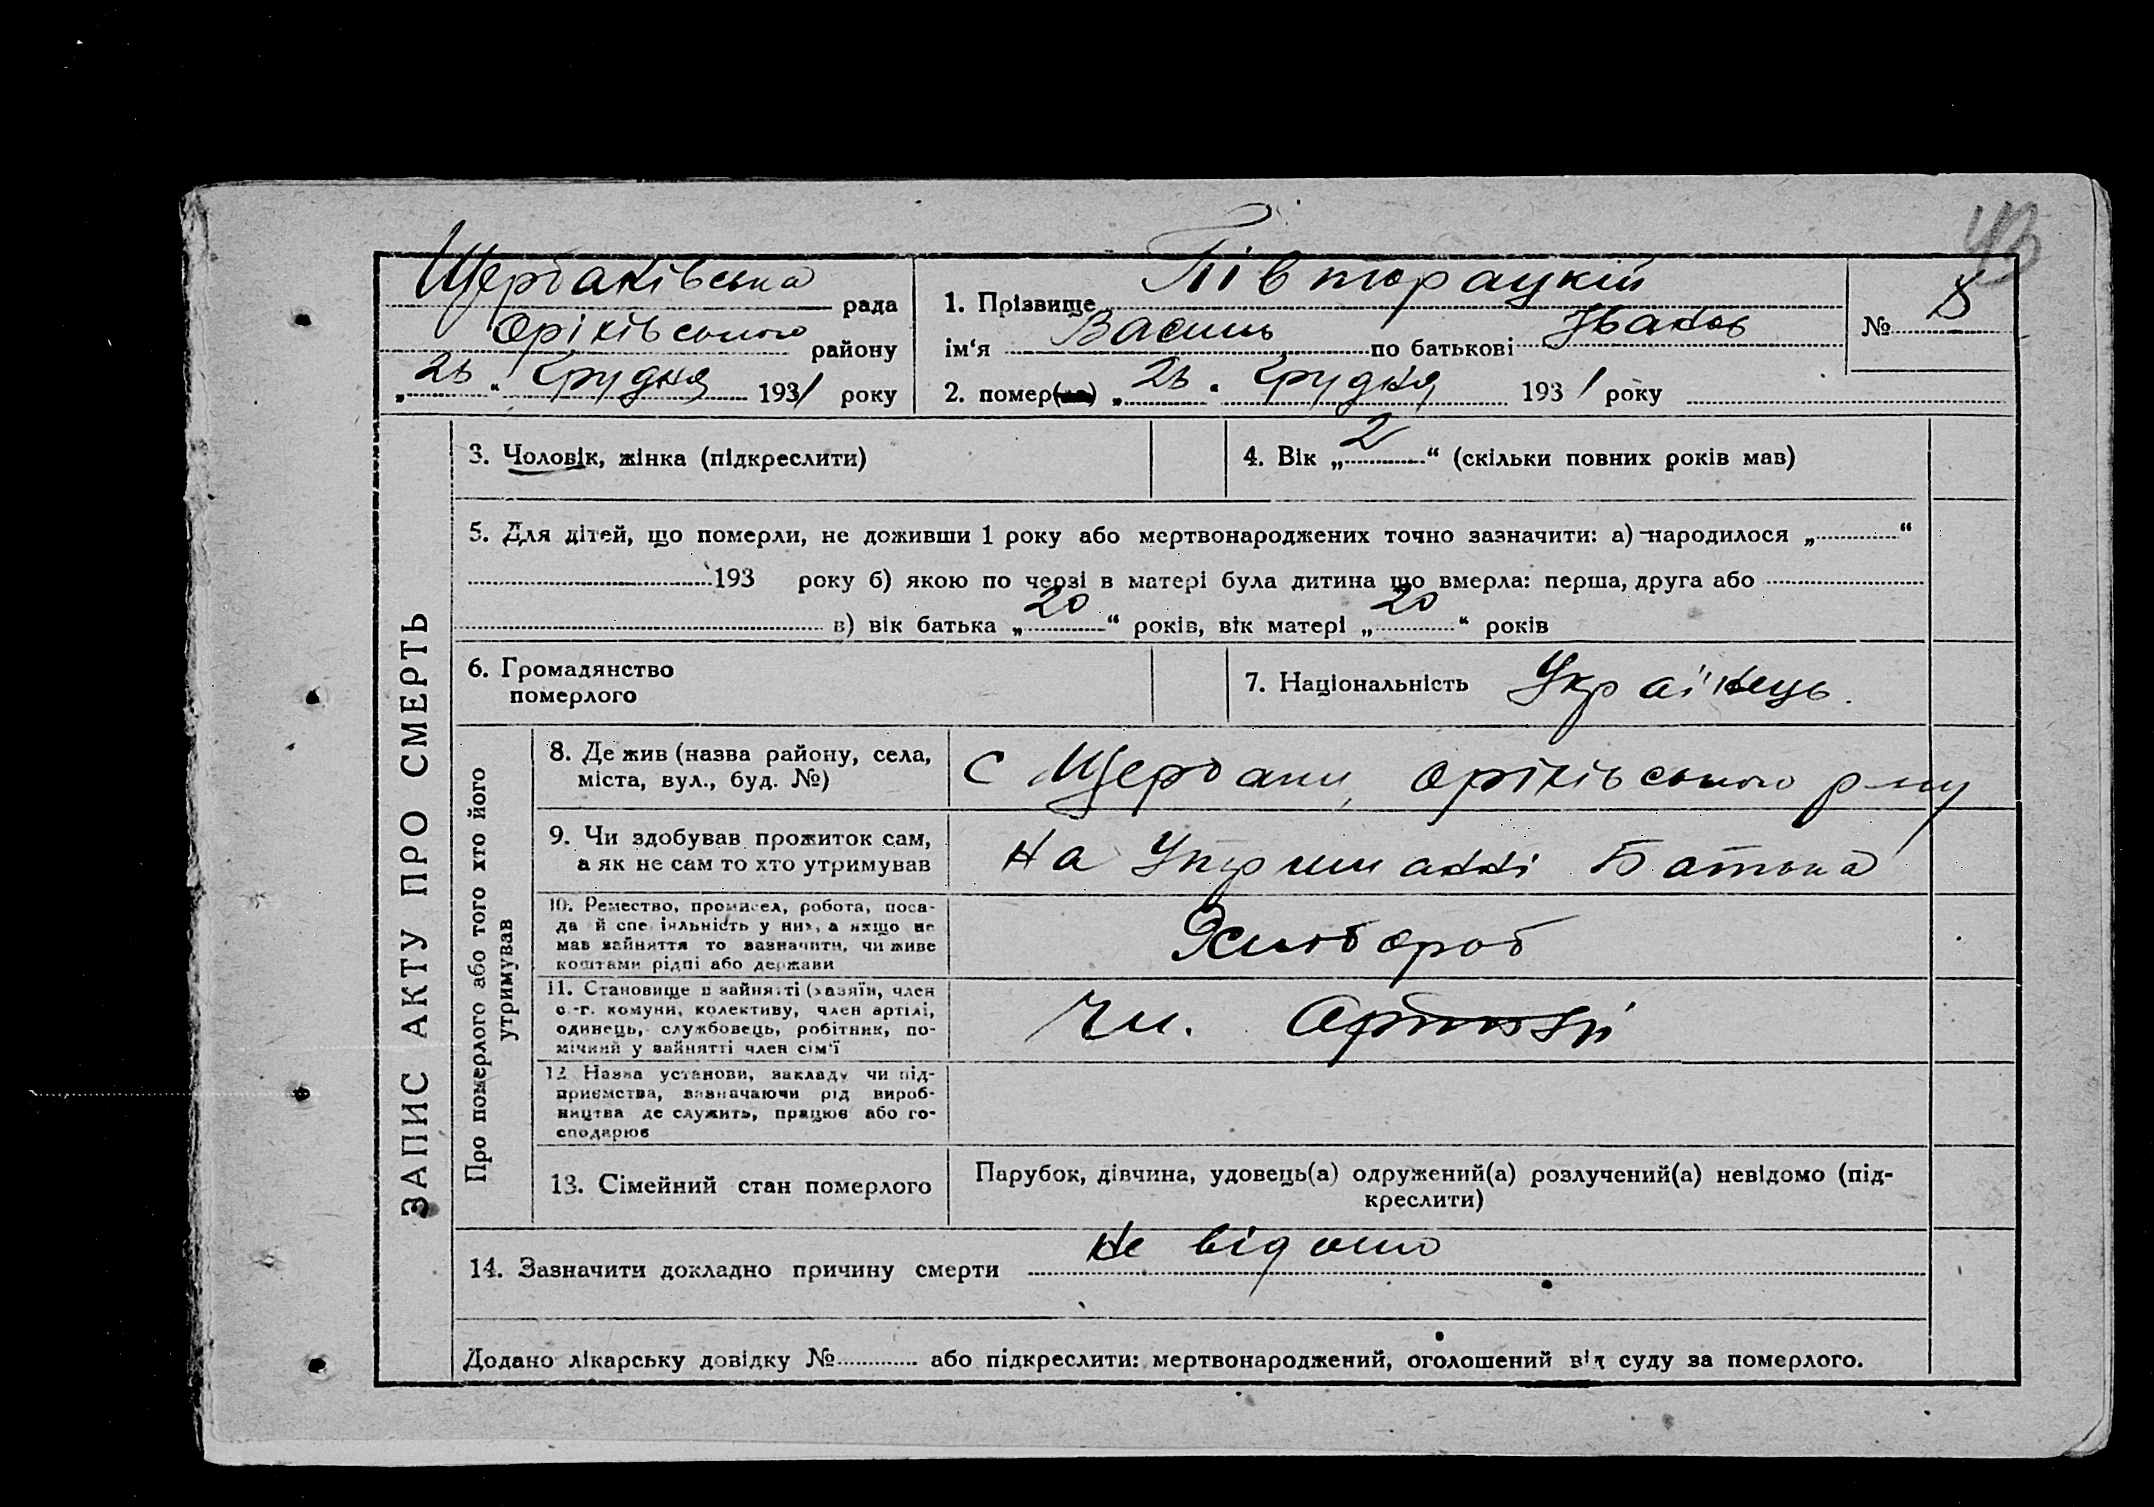 43
Щербаківська рада
Оріхівського району
„26“ Грудня 1931 року
1. Прізвище Півторацкій
ім‘я Василь по батькові Іванов
№ 8
2. помер(ла) „26“ Грудня 1931 року
ЗАПИС АКТУ ПРО СМЕРТЬ
3. Чоловік, жінка (підкреслити)
4. Вік „2“ (скільки повних років мав)
5. Для дітей, що померли, не доживши 1 року або мертвонароджених точно зазначити: а) народилося „ “
193 року б) якою по черзі в матері була дитина що вмерла: перша, друга або
в) вік батька „20“ років, вік матері „20“ років
6. Громадянство
померлого
7. Національність Українець.
Про померлого або того хто його
утримував
8. Де жив (назва району, села,
міста, вул., буд. №)
С Щербаки, Оріхівського р-ну
9. Чи здобував прожиток сам,
а як не сам то хто утримував
На Утриманні Батька
10. Ремество, промисел, робота, поса-
да й спеціяльність у них, а якщо не
мав зайняття то зазначити, чи живе
коштами рідні або держави
Хлібороб
11. Становище в зайнятті (хазяїн, член
с.-г. комуни, колективу, член артілі,
одинець, службовець, робітник, по-
мічний у зайнятті член сім‘ї
Чл. Артілі
12. Назва установи, закладу чи під-
приємства, зазначаючи рід вироб-
ництва де служить, працює або го-
сподарює
13. Сімейний стан померлого
Парубок, дівчина, удовець(а) одружений(а) розлучений(а) невідомо (під-
креслити)
14. Зазначити докладно причину смерти Не відомо
Додано лікарську довідку № або підкреслити: мертвонароджений, оголошений від суду за померлого.